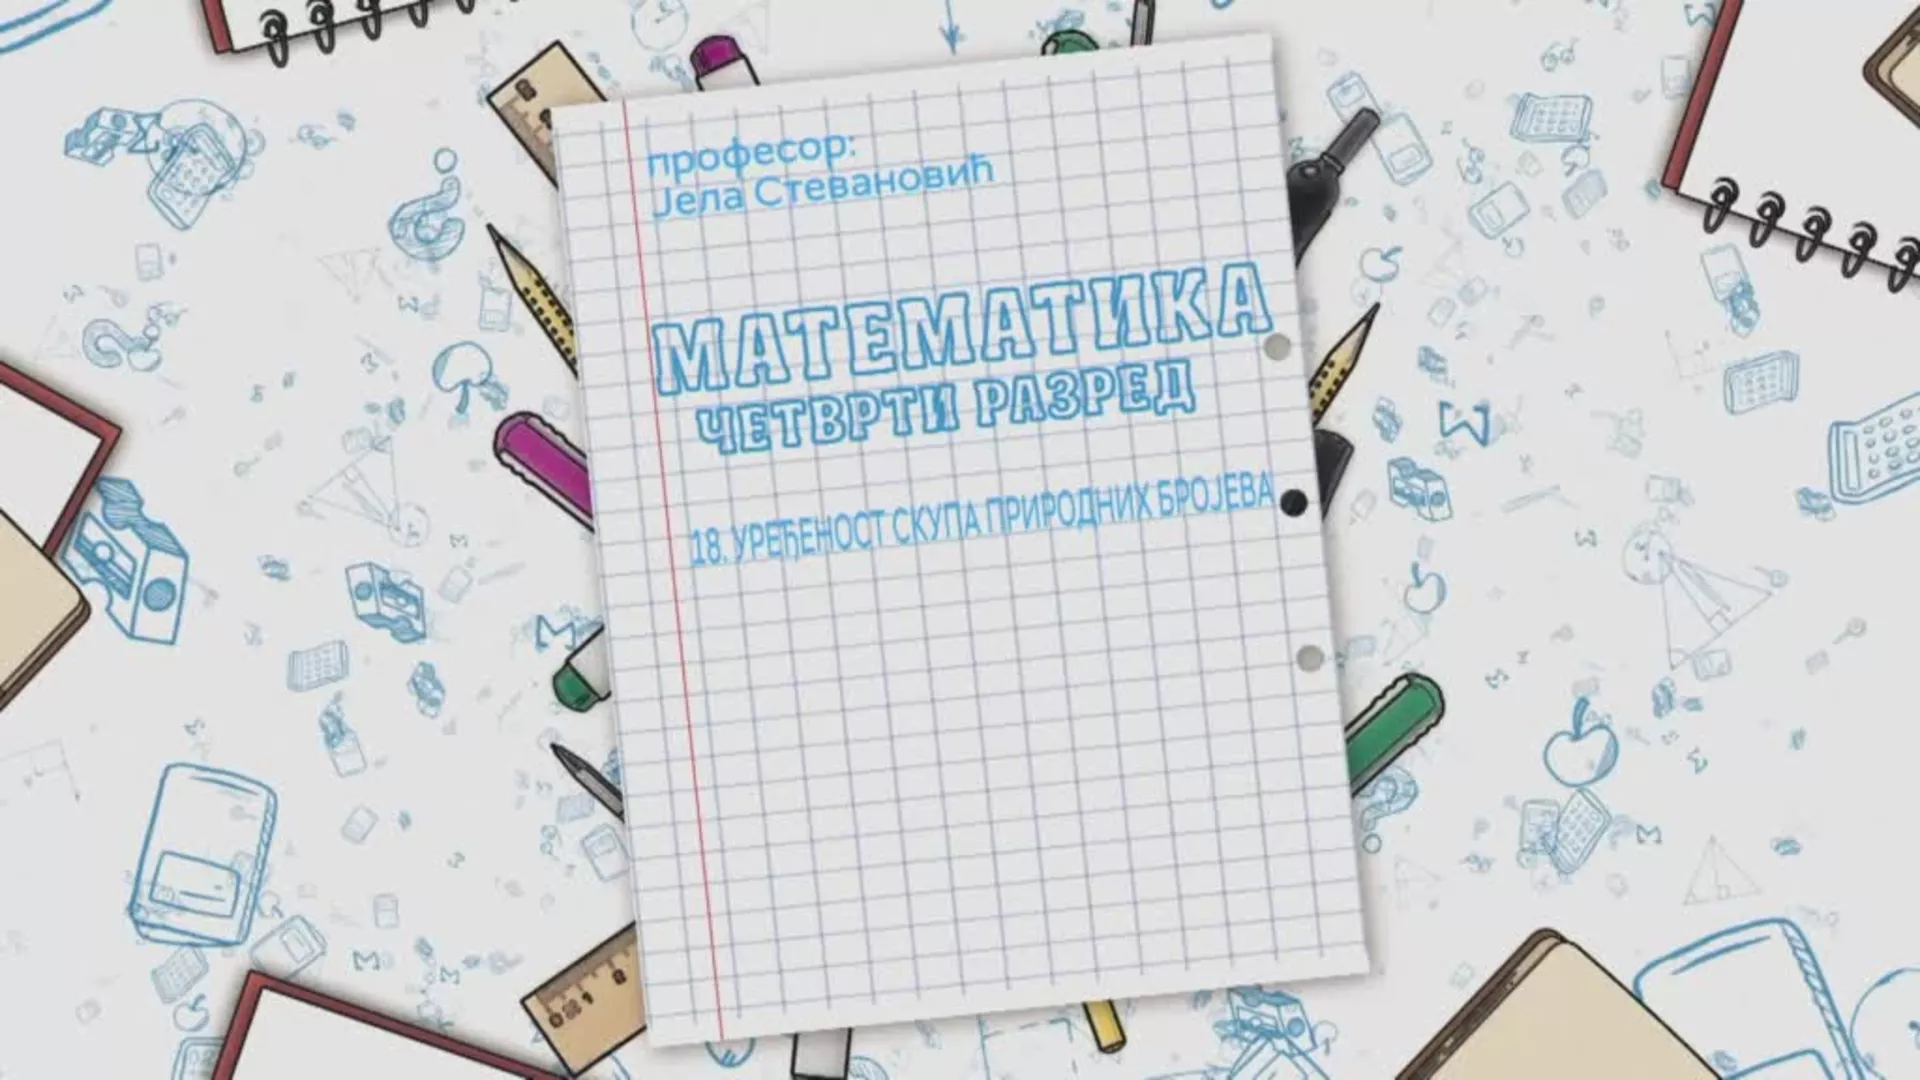 професор:
Јела Стевановић
МАТЕМАТИКА
ЧЕТВРТИ РАЗРЕД
18. УРЕЂЕНОСТ СКУПА ПРИРОДНИХ БРОЈЕВА